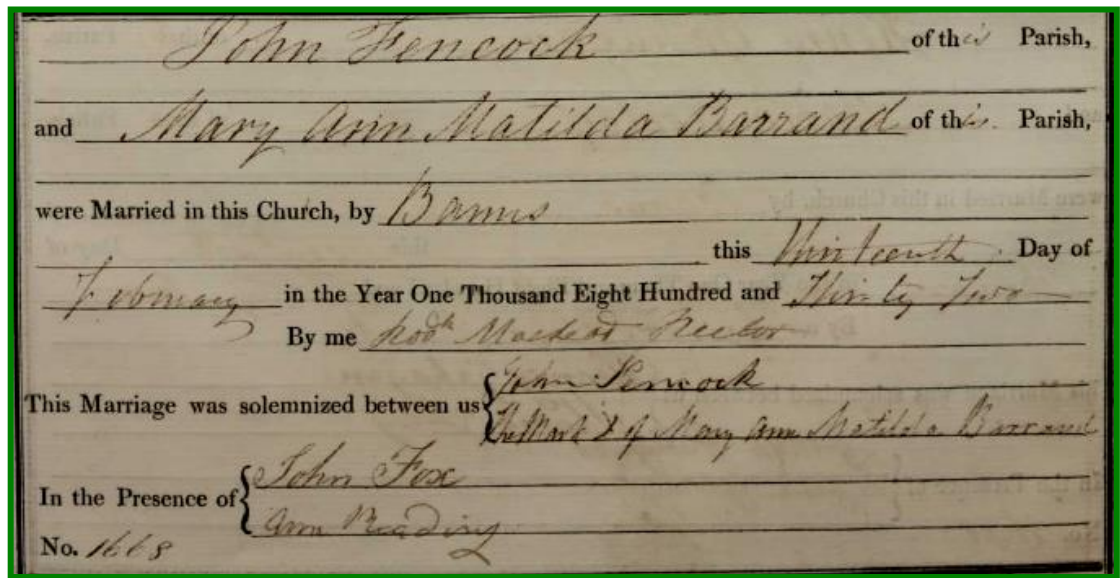 John Fencock of this Parish,
and Mary Ann Matilda Barrand of this Parish,
were Married in this Church, by Banns
this thirteenth Day of
February in the Year One Thousand Eight Hundred and Thirty Two
By me Rodk Macleod Rector
This Marriage was solemnized between us John Pencock
The Mark X of Mary Ann Matilda Barrand
In the Presence of John Fox
Ann Reading
No. 1668